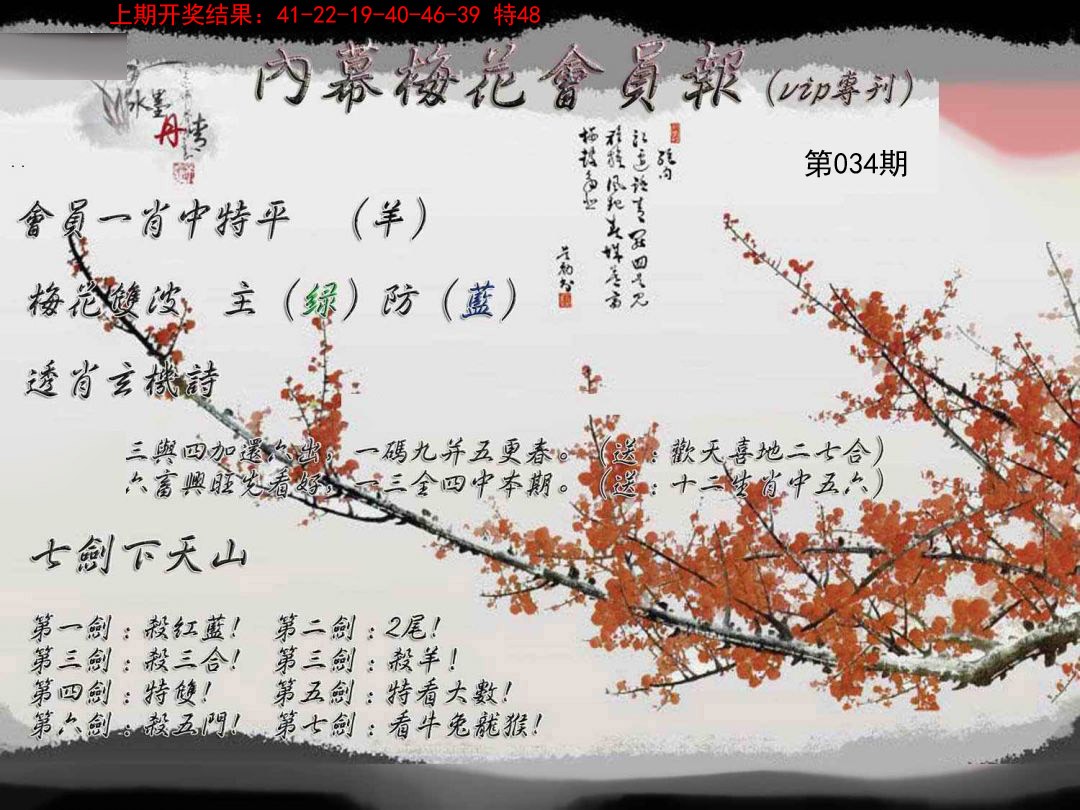 上期开奖结果：41-22-19-40-46-39 特48
內幕梅花會員報（vip專刊）
水墨
丹青
第034期
會員一肖中特平 （羊）
梅花雙波 主（绿）防（藍）
透肖玄機詩
三與四加還六出，一碼九并五更春。（送：歡天喜地二七合）
六畜興旺先看好，一三全四中本期。（送：十二生肖中五六）
七劍下天山
第一劍：殺紅藍！ 第二劍：2尾！
第三劍：殺三合！ 第三劍：殺羊！
第四劍：特雙！ 第五劍：特看大數！
第六劍：殺五門！ 第七劍：看牛兔龍猴！